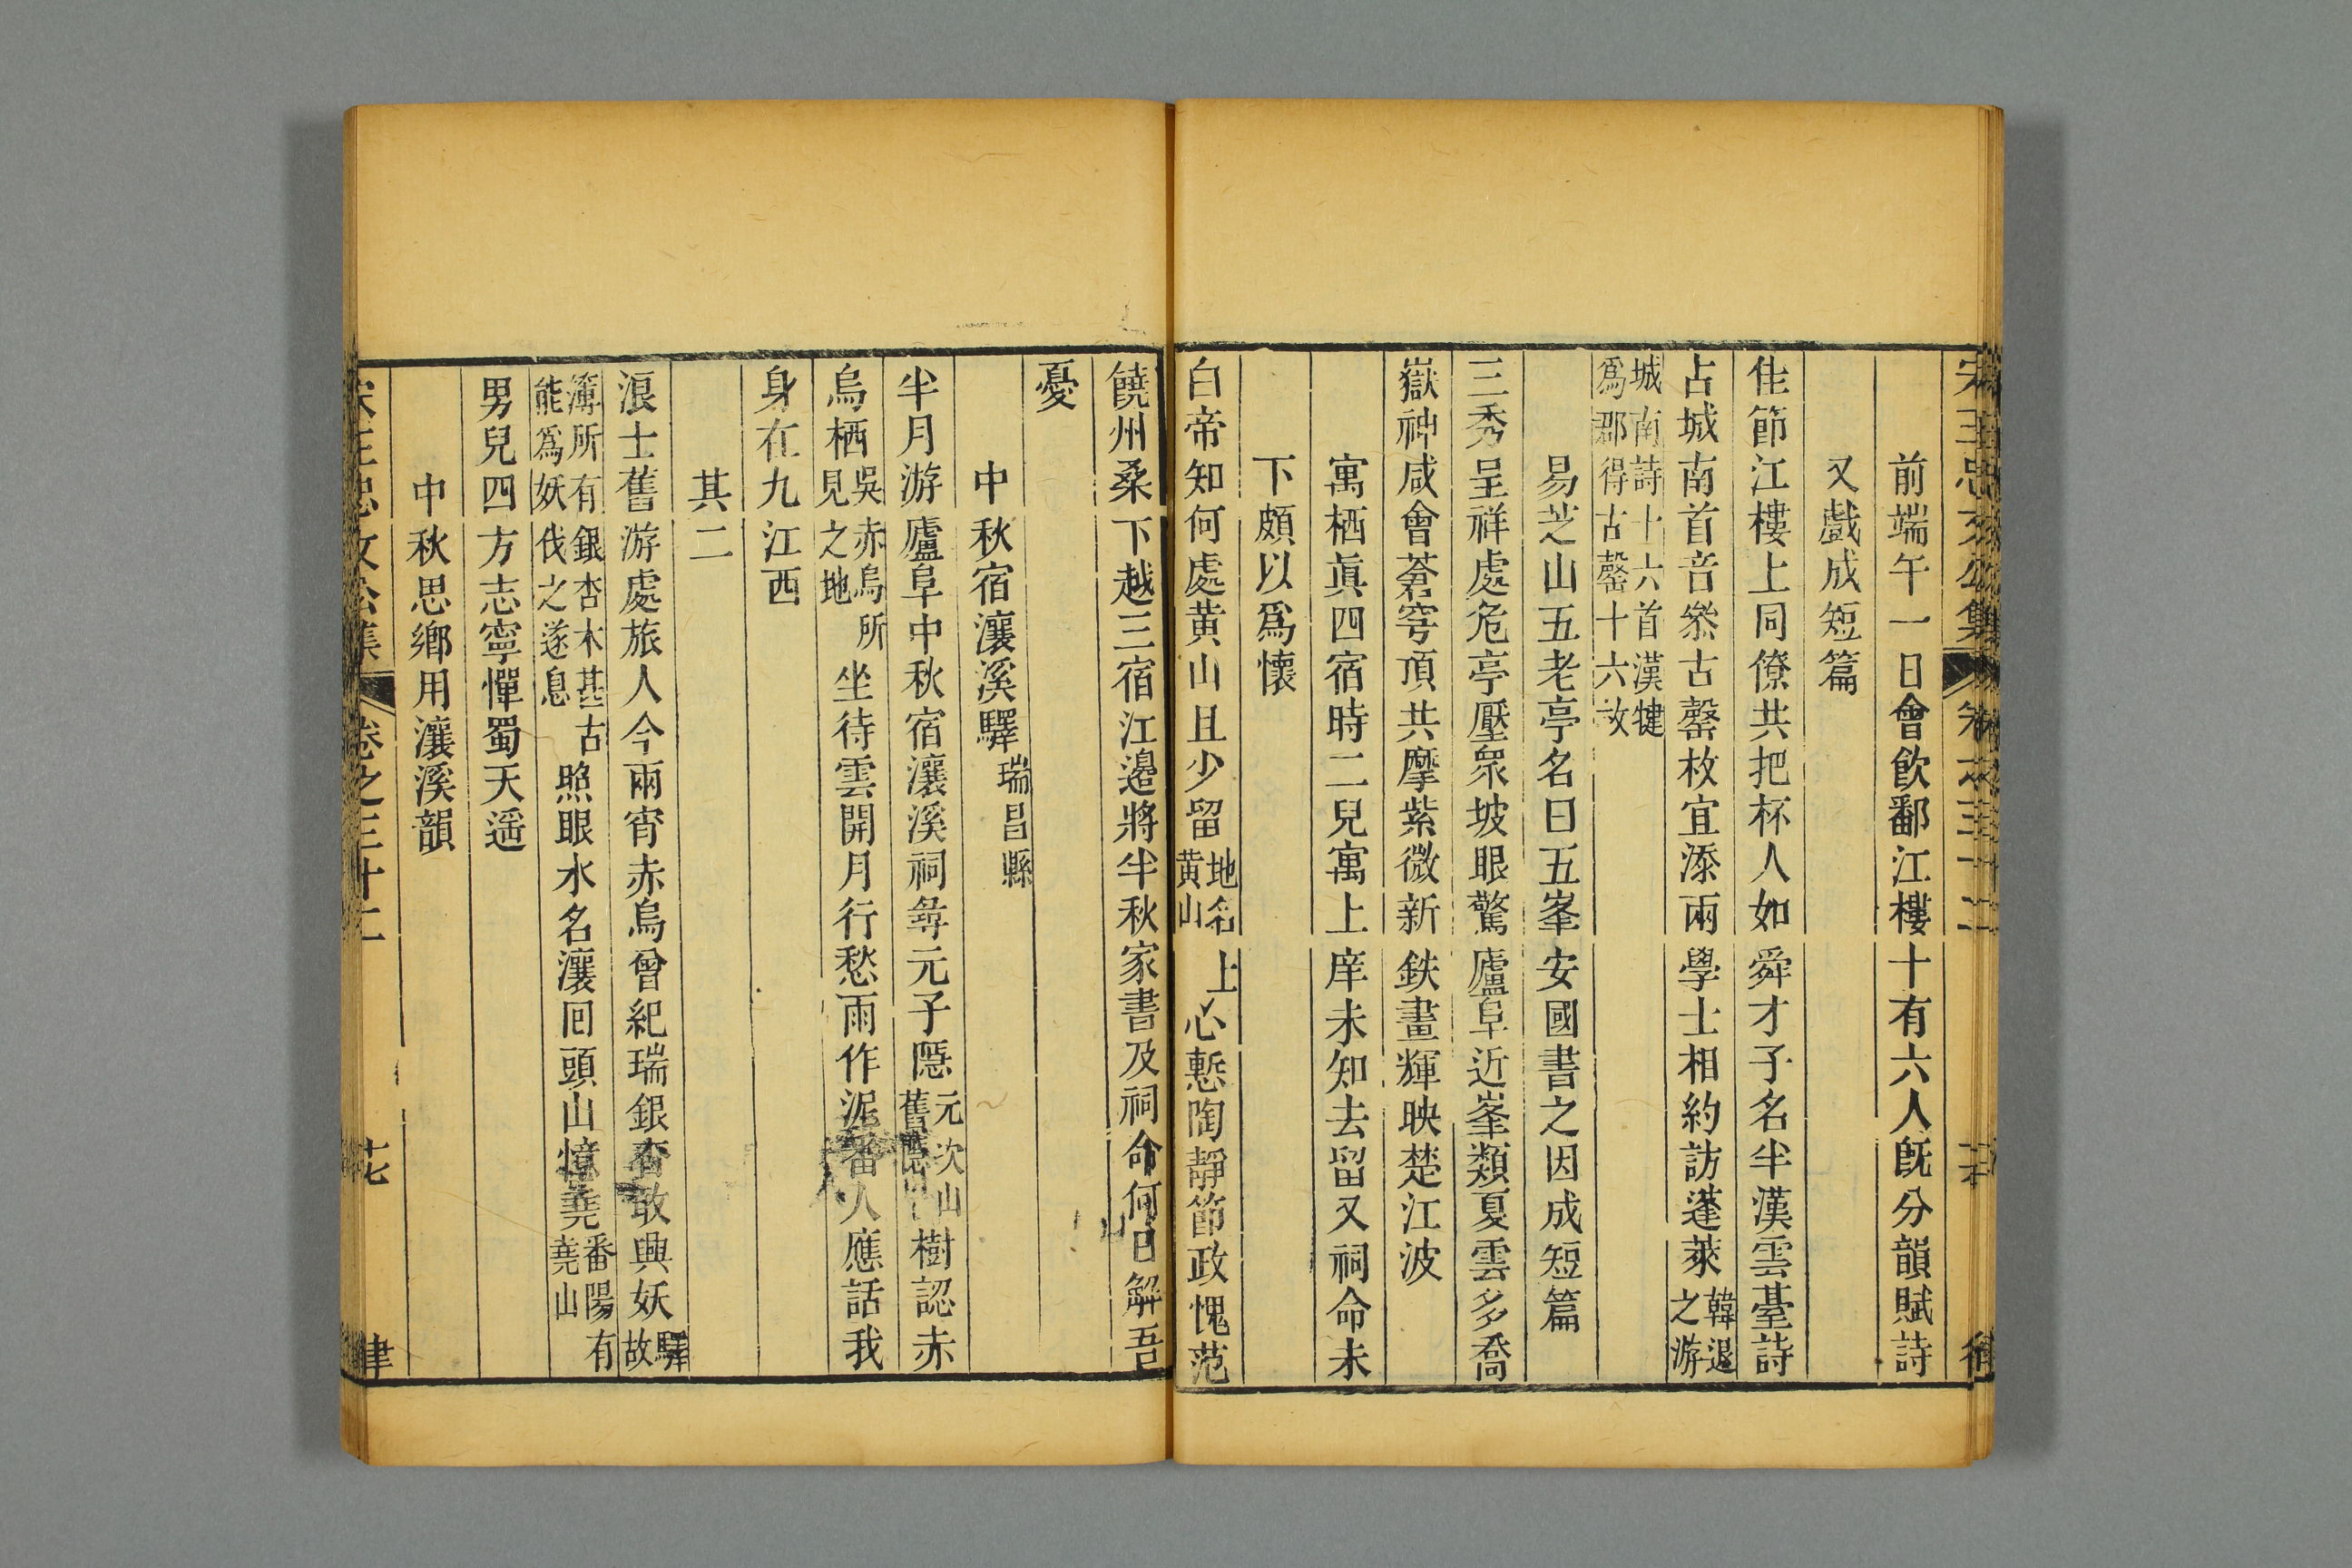 宋王忠文公集 卷之三十二
前端午一日會飲鄱江樓十有六人既分韻賦詩
又戲成短篇
佳節江樓上同僚共把杯人如舜才子名半漢雲臺詩
占城南首音叅古罄枚宜添兩學士相約訪蓬萊韓退之游
城南詩十六首漢犍爲郡得古罄十六枚
易芝山五老亭名曰五峯安國書之因成短篇
三秀呈祥處危亭壓衆坡眼驚廬阜近峯類夏雲多喬
嶽神咸會蒼穹頂共摩紫微新鉄畫輝映楚江波
寓栖眞四宿時二兒寓上庠未知去留又祠命未
下頗以爲懷
白帝知何處黄山且少留地名黄山上心慙陶靜節政愧范
饒州桑下越三宿江邉將半秋家書及祠命何日解吾
憂
中秋宿瀼溪驛瑞昌縣
半月游廬阜中秋宿瀼溪祠尋元子隱元次山舊隱樹認赤
烏栖吳赤烏所見之地坐待雲開月行愁雨作泥番人應話我
身在九江西
其二
浪士舊游處旅人今兩宵赤烏曾紀瑞銀杏敢興妖驛故
簿所有銀杏木甚古能爲妖伐之遂息照眼水名瀼回頭山憶堯番陽有堯山
男兒四方志寧憚蜀天遥
中秋思鄉用瀼溪韻
宋王忠文公集 卷之三十二 律